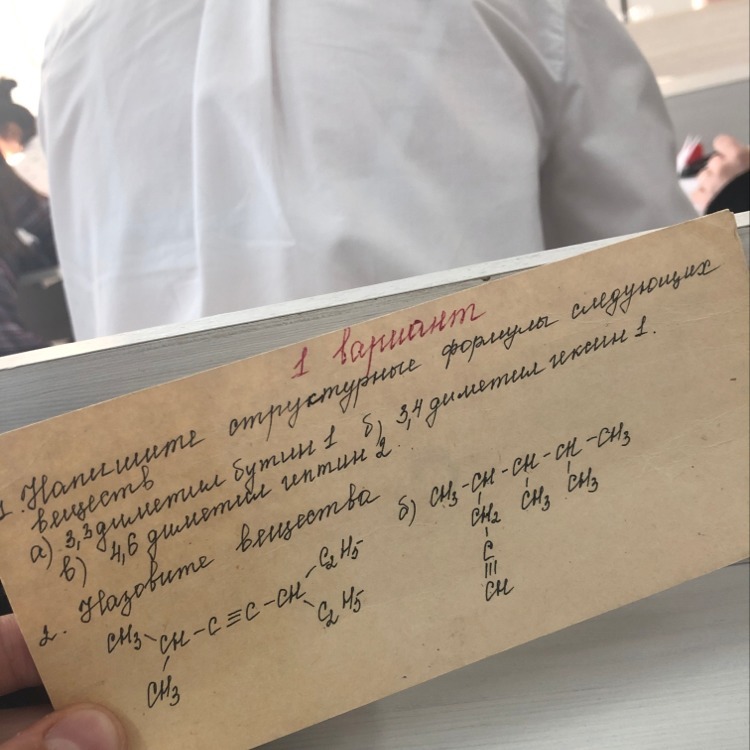 1 вариант
1. Напишите структурные формулы следующих
веществ
а) 3,3 диметил бутин 1 б) 3,4 диметил гексин 1.
в) 4,6 диметил гептин 2.
2. Назовите вещества
CH3 - CH - C ≡ C - CH - C2H5
CH3 C2H5
б) CH3 - CH - CH - CH - CH3
CH2 CH3 CH3
C
≡
CH